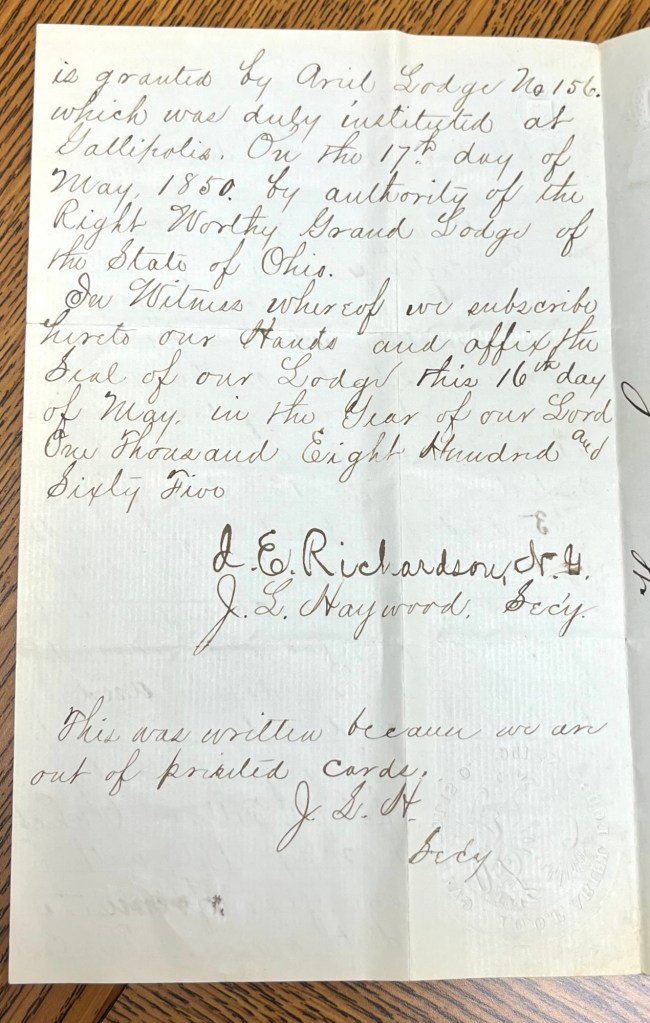 is granted by Ariel Lodge No 156.
which was duly instituted at
Gallipolis. On the 17th day of
May, 1850. by authority of the
Right Worthy Grand Lodge of
the State of Ohio.
In Witness whereof we subscribe
hereto our Hands and affix the
Seal of our Lodge this 16th day
of May. in the Year of our Lord
One Thousand Eight Hundred and
Sixty Five
J. E. Richardson, N. G.
J. L. Haywood. Secy.
This was written because we are
out of printed cards.
J. L. H.
Secy